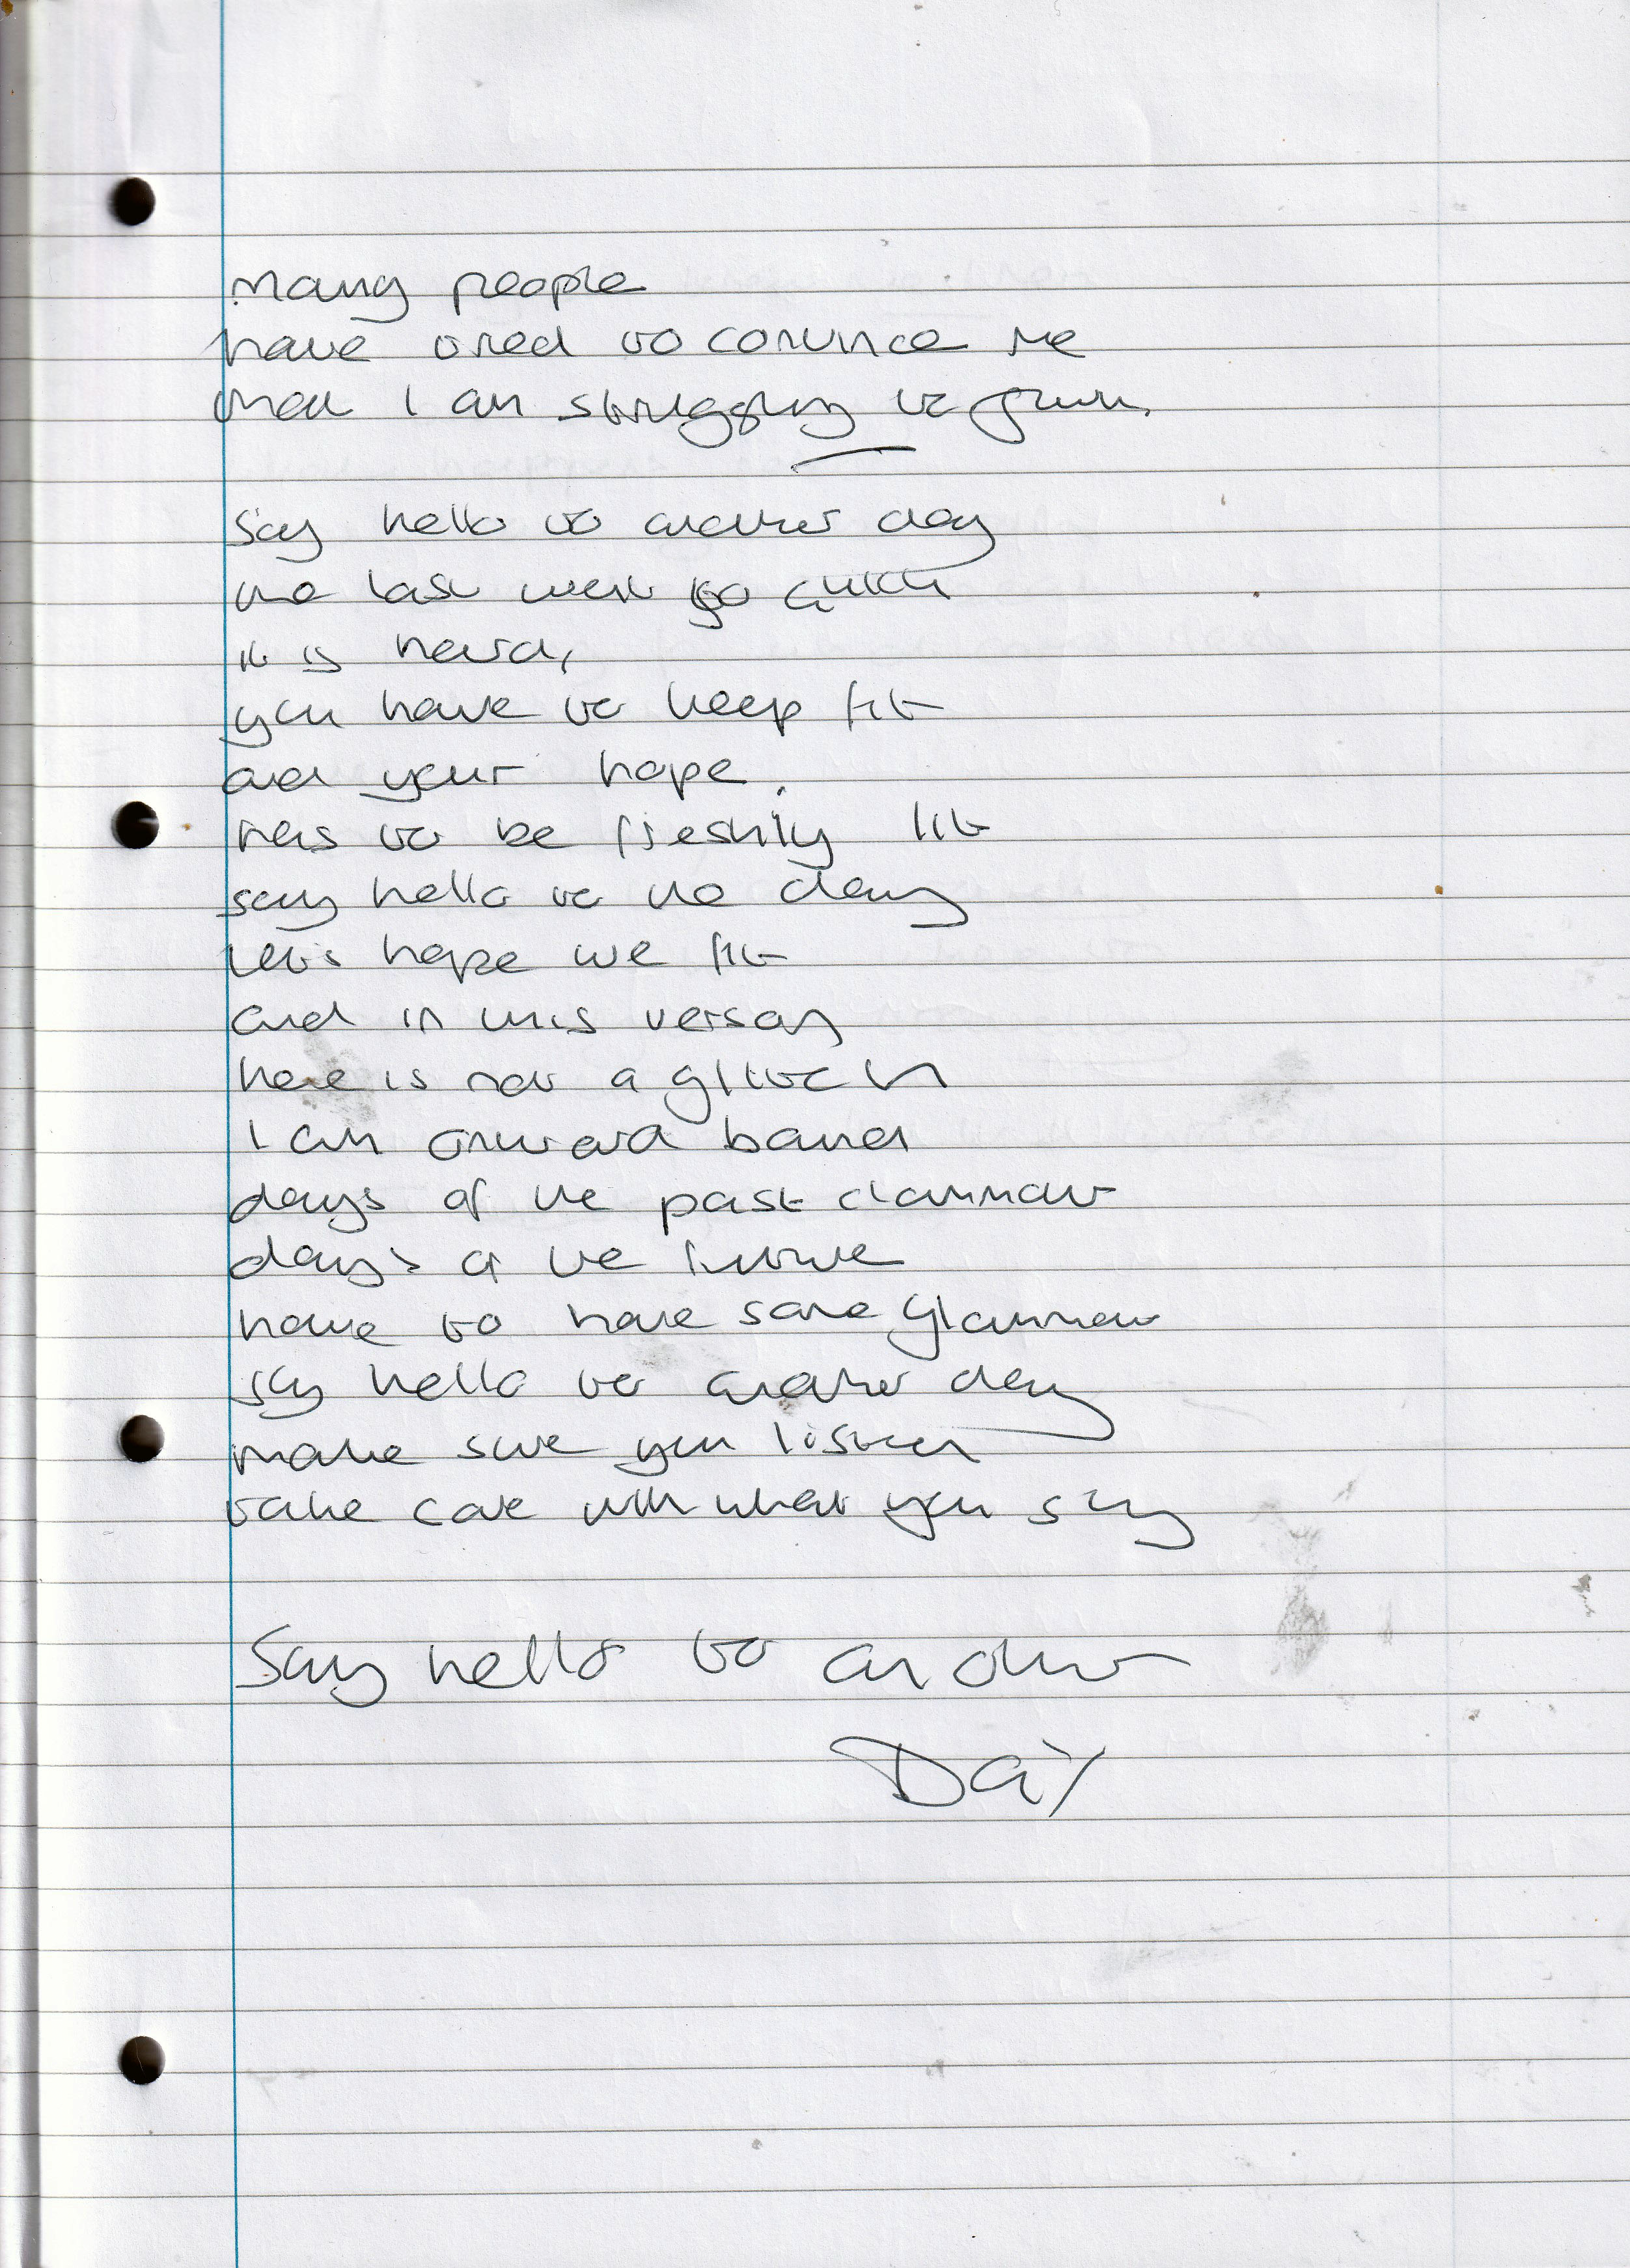 many people
have tried to convince me
that I am struggling to
Say hello to another day
the last went too quick
it is hard,
you have to keep fit
and your hope.
has to be freshly lit
say hello to the day
let's hope we fit
and in this
here is not a glitch
I am onward bound
days of the past clammour
days of the future
have to have some glammour
say hello to another day
make sure you listen
take care with what you say
Say hello to another
DAY